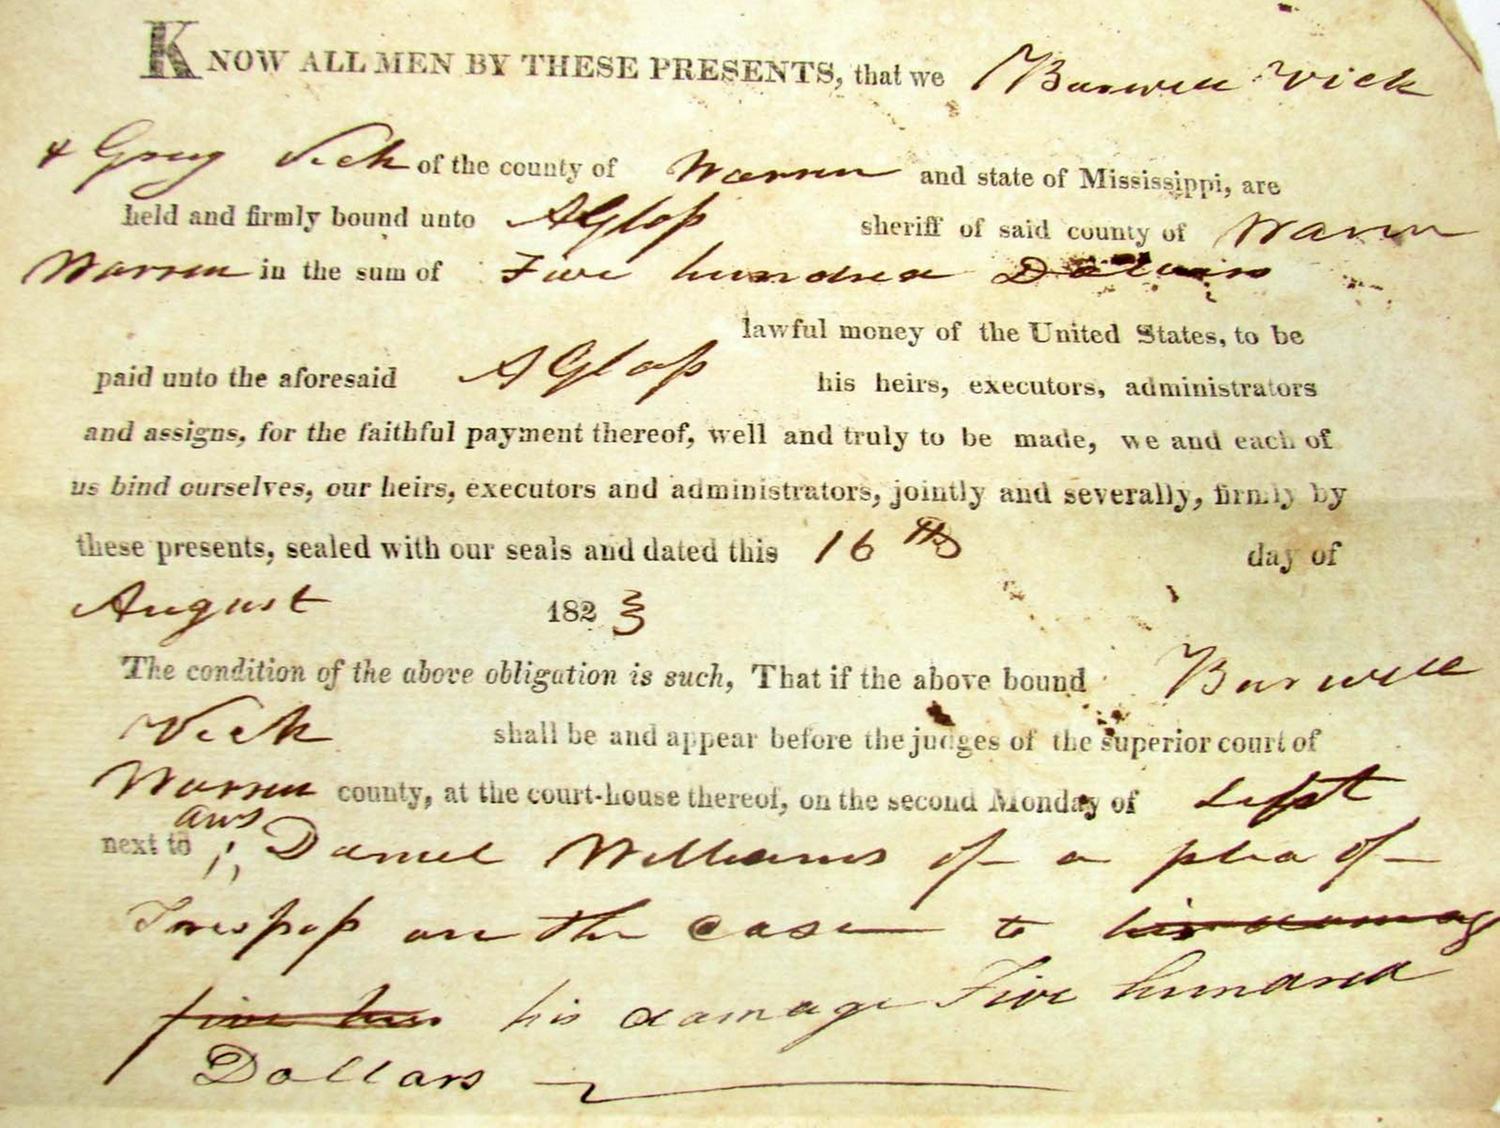 KNOW ALL MEN BY THESE PRESENTS, that we Burwell Vick
& Gray Vick of the county of Warren and state of Mississippi, are
held and firmly bound unto A Glass sheriff of said county of Warren
Warren in the sum of Five hundred Dollars
lawful money of the United States, to be
paid unto the aforesaid A Glass his heirs, executors, administrators
and assigns, for the faithful payment thereof, well and truly to be made, we and each of
us bind ourselves, our heirs, executors and administrators, jointly and severally, firmly by
these presents, sealed with our seals and dated this 16th day of
August 1823
The condition of the above obligation is such, That if the above bound Burwell
Vick shall be and appear before the judges of the superior court of
Warren county, at the court-house thereof, on the second Monday of Sept
next to ans Daniel Williams of a plea of
Trespass on the case to his damag
five hun his damage Five hundred
Dollars